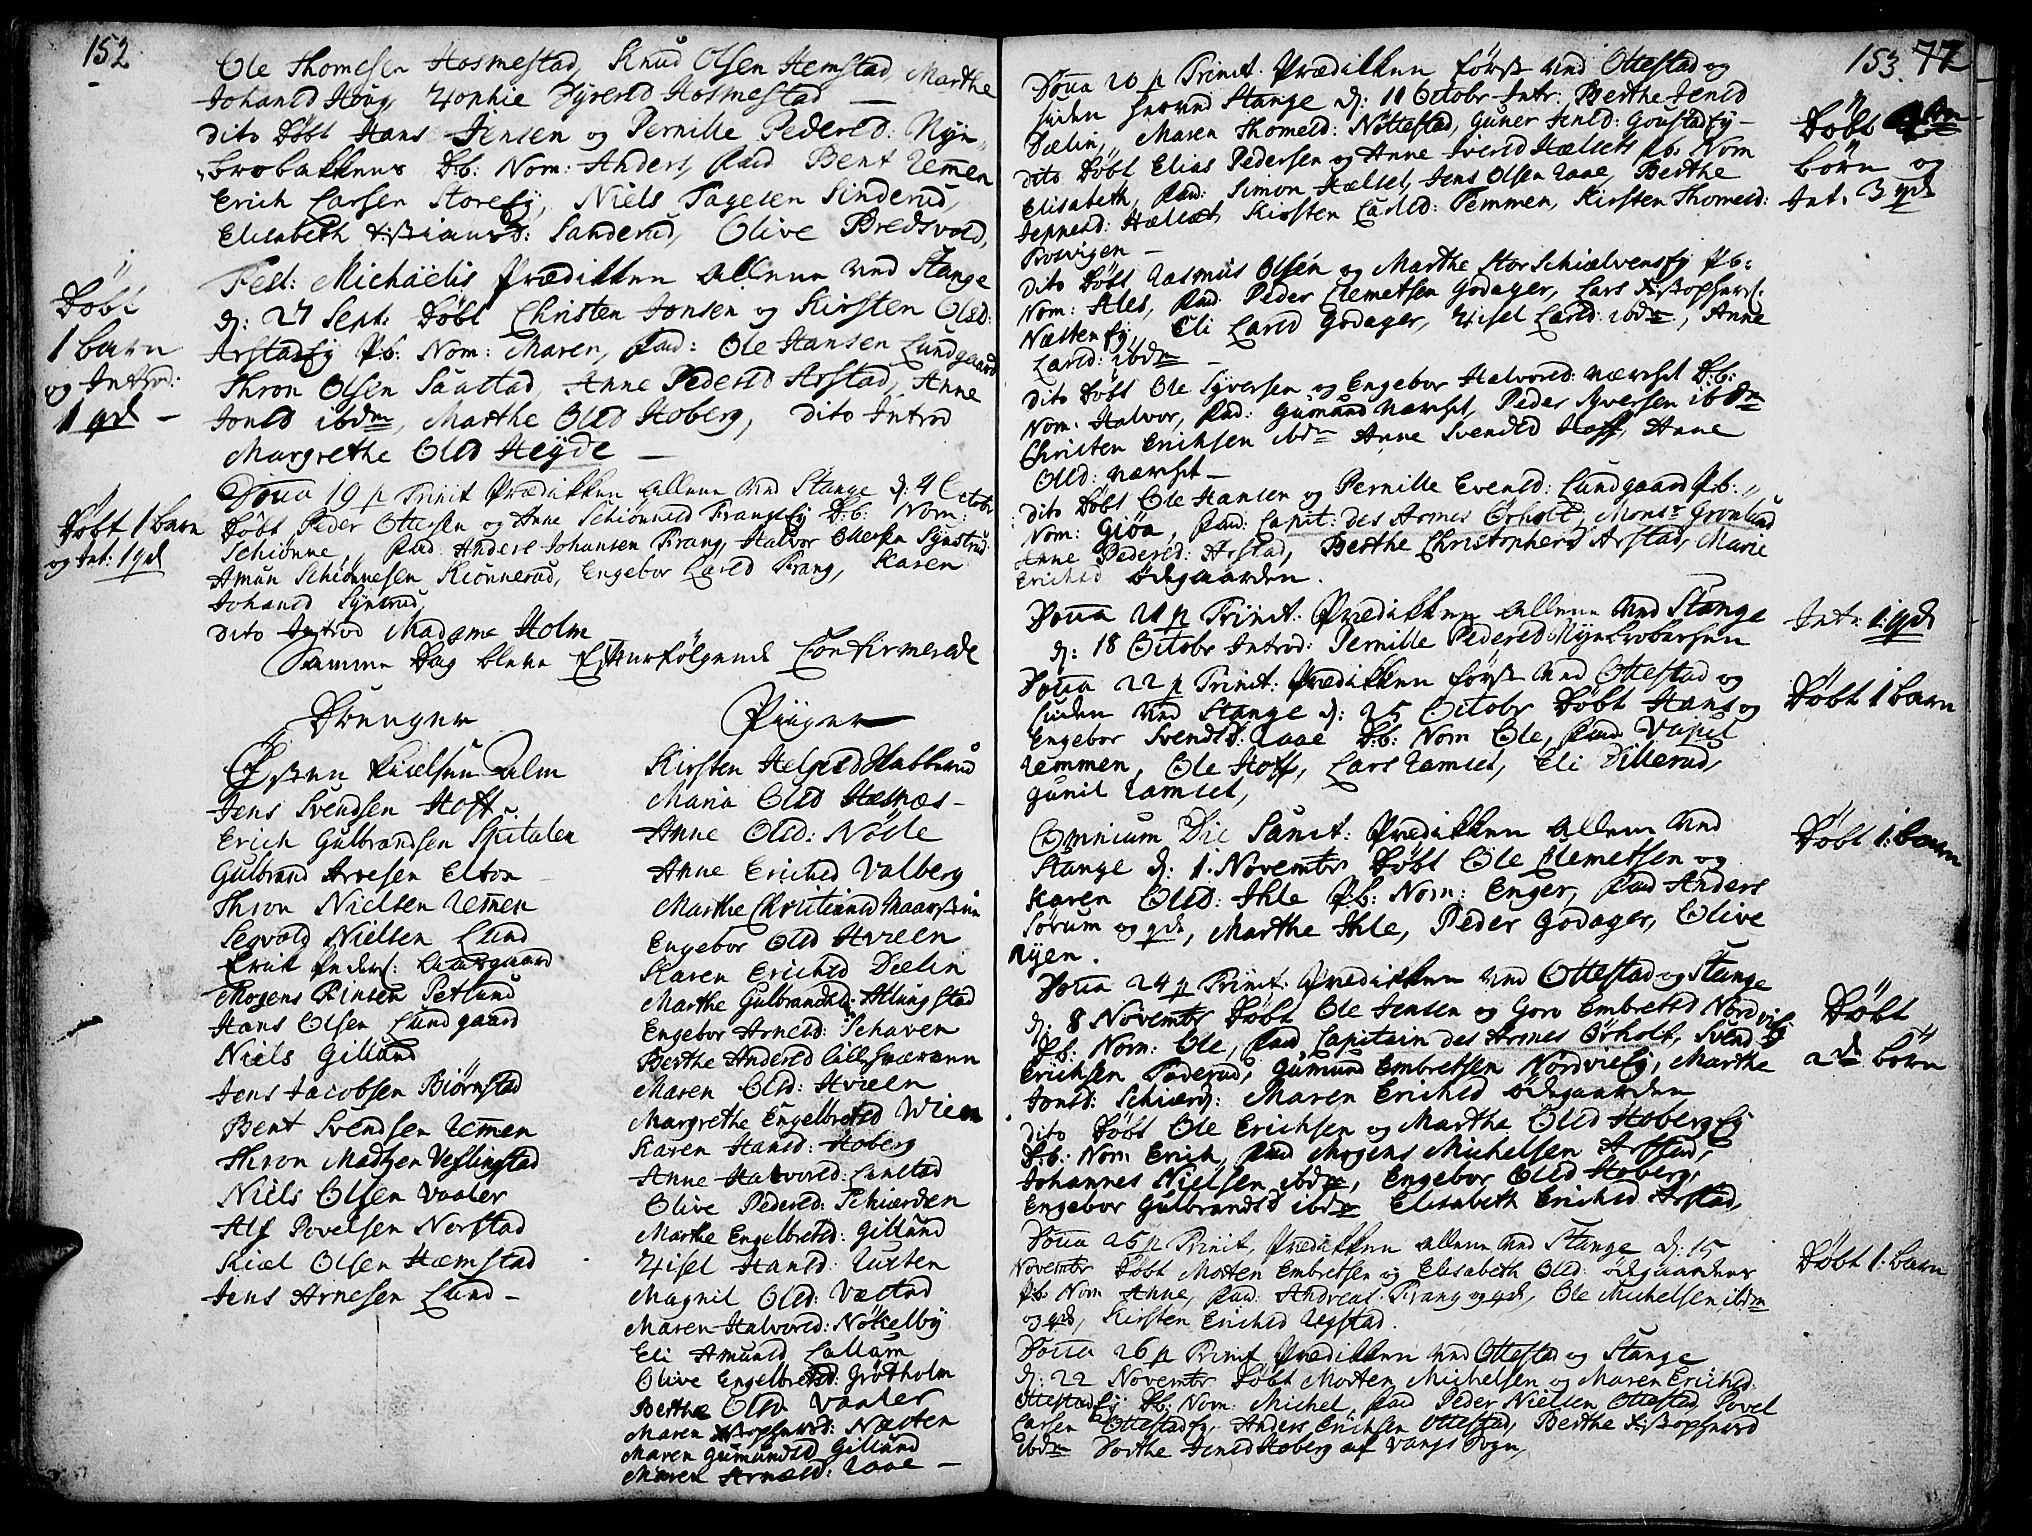 152
Ole Thomesen Hosmestad, Knud Olsen Hemstad Marthe
Johansd Houg, Zophie Syversd Hosmestad —
dito Döbt Hans Jensen og Pernille Pedersd: Nÿn„
brobakken D.b: Nom: Anders, fad Bent Remen
Erich Larsen Store Ey, Niels Tagesen Sinderud,
Elisabeth Sanderud, Olive Bredsvold,
Fest: Michaëlis Prædikken allene ved Stange
d: 27 Sept: Döbt Christen Jonsen og Kirsten Olsd:
Arstad Ey P.b: Nom: Maren, fad: Ole Hansen Lundgaard
Thron Olsen Saustad, Anne Pedersd Arstad, Anne
Jonsd ibdm, Marthe Olsd Hoberg, dito Introd
Margrethe Olsd Heÿde —
Döbt
1 barn
og Introd:
1 qd —
Doca 19 p Trinit Prædikken allene ved Stange d: 4 Octobr
Döbt Peder Ottersen og Anne Schiönnesd Frang Ey D.b: Nom:
Schiönne, fad Anders Johansen Frang, Halvor Ottersen Synstrud
Amun Schiönnesen Kiönnerud, Engebor Larsd Frang, Karen
Johansd Synstrud,
dito Introd Madame Holm
Döbt 1 barn
og Int: 1 qd
Samme Dag bleve Efterfölgende Confirmerede
Drenger
Östen Paulsen Alm
Jens Svendsen Hoff
Erich Gulbrandsen Spitalen
Gulbrand Arvesen Elton
Thron Nielsen Remen
Segvold Nielsen Lund
Erick Peders: Laargaard
Mogens Finsen Petlund
Hans Olsen Lundgaard
Niels Gillund
Jens Jacobsen Biörnstad
Bent Svendsen Remen
Thron Madtzen Veslingstad
Niels Olsen Vaaler
Alf Povelsen Norstad
Kiel Olsen Hæmstad
Jens Arnesen Lund —
Piiger
Kirsten Helgesd Habberud
Maria Olsd Hæsnæs —
Anne Olsd: Nösle
Anne Erichsd Valberg
Marthe Christiansd
Engebor Olsd Hveen
Karen Erichsd Dælin
Marthe Gulbrandsd: Atlungstad
Engebor Arnesd: Schaven
Berthe Andersd
Maren Olsd: Hveen
Margrethe Engelbretsd Wien
Karen Hansd: Hoberg
Anne Halvorsd:
Olive Pedersd: Schiærden
Marthe Engelbretsd: Gillund
Zisel Hansd:
Magnil Olsd:
Maren Halvorsd: Nökelbÿ
Eli Amunsd Callum
Olive Engelbretsd: Grötholm
Berthe Olsd Vaaler
Maren Næsten
Maren Gumundsd Gillund
Maren Arnesd: Raae —
153. 77
Doca 20 p Trinit. Prædikken först ved Ottestad og
siden her ved Stange d: 11 Octobr Intr: Berthe Jensd
Dælin, Maren Thomesd: Nöttestad, Guner Jensd: Goustad Ey —
dito Döbt Elias Pedersen og Anne Iversd Hælsets P.b: Nom
Elisabeth, fad: Simon Hælset, Jens Olsen Raae, Berthe
Jeppesd: Hælset, Kirsten Larsd: Pemmen, Kirsten Thomesd:
Bosvigen —
Döbt
börn og
Int. 3 qd
dito Döbt Rasmus Olsen og Marthe Stor Schiælvens Ey P.b:
Nom: Ales, fad Peder Clemetsen Godager, Lars
Næsten Ey, Eli Larsd Godager, Zisel Larsd: ibdm, Anne
Larsd: ibdm —
dito Döbt Ole Syversen og Engebor Halvorsd: D.b:
Nom: Halvor, fad: Gumund Peder Syversen ibdm
Christen Erichsen ibdm Anne Svendsd Hoff, Anne
Olsd: —
dito Döbt Ole Hansen og Pernille Evensd: Lundgaard P.b:
Nom: Giöa, fad: Capit: des Armes Örholt, Monsr Grönlund
Anne Pedersd: Arstad, Berthe Christophersd Arstad, Marie
Erichsd ödegaarden.
Doca 21 p Trinit: Prædikken allene ved Stange
d: 18 Octobr Introd: Pernille Pedersd
Int: 1. qd
Doca 22 p Trinit: Prædikken först ved Ottestad og
siden ved Stange d: 25 Octobr Döbt Hans og
Engebor Svendsd: Raae D.b: Nom Ole, fad
Remmen, Ole Hoff, Lars Ramset, Eli Dillerud,
Gunil Ramset,
Döbt 1 barn
Omnium Die Sanct: Prædikken allene ved
Stange d: 1. Novembr Döbt Ole Clemetsen og
Karen Olsd: Ihle P.b: Nom: Enger, fad Anders
Sörum og qd, Marthe Ihle, Peder Godager, Olive
Ryen.
Döbt 1. barn
Doca 24 p Trinit: Prædikken ved Ottestad og Stange
d: 8 Novembr Döbt Ole Jensen og Goro Embretsd Nordvig
D.b: Nom: Ole, fad Capitain des Armes Örholt, Svend
Erichsen Paderud, Gumund Embretsen Nordvig Ey, Marthe
Jonsd: Schiærd: Maren Erichsd ödegaarden
Döbt
2de börn
dito Döbt Ole Erichsen og Marthe Olsd Hoberg Ey
D.b: Nom: Erich, fad Mogens Michelsen Arstad,
Johannes Nielsen ibdm, Engebor Olsd Hoberg,
Engebor Gulbrandsd ibdm Elisabeth Erichsd Arstad,
Doca 25 p Trinit, Prædikken allene ved Stange d: 15
Novembr Döbt Morten Embretsen og Elisabeth Olsd: ödegaarden
P.b: Nom Anne, fad: Andreas Frang og qd, Ole Michelsen ibdm
og qd, Kirsten Erichsd Regstad.
Döbt 1. barn
Doca 26 p Trinit Prædikken ved Ottestad og Stange
d: 22 Novembr Döbt Morten Michelsen og Maren Erichsd
Ottestad Ey D.b: Nom: Michel, fad Peder Nielsen Ottestad, Povel
Larsen Ottestad Ey, Anders Erichsen Ottestad, Berthe
ibdm Dorthe Jensd Hoberg af Vangs Sogn,